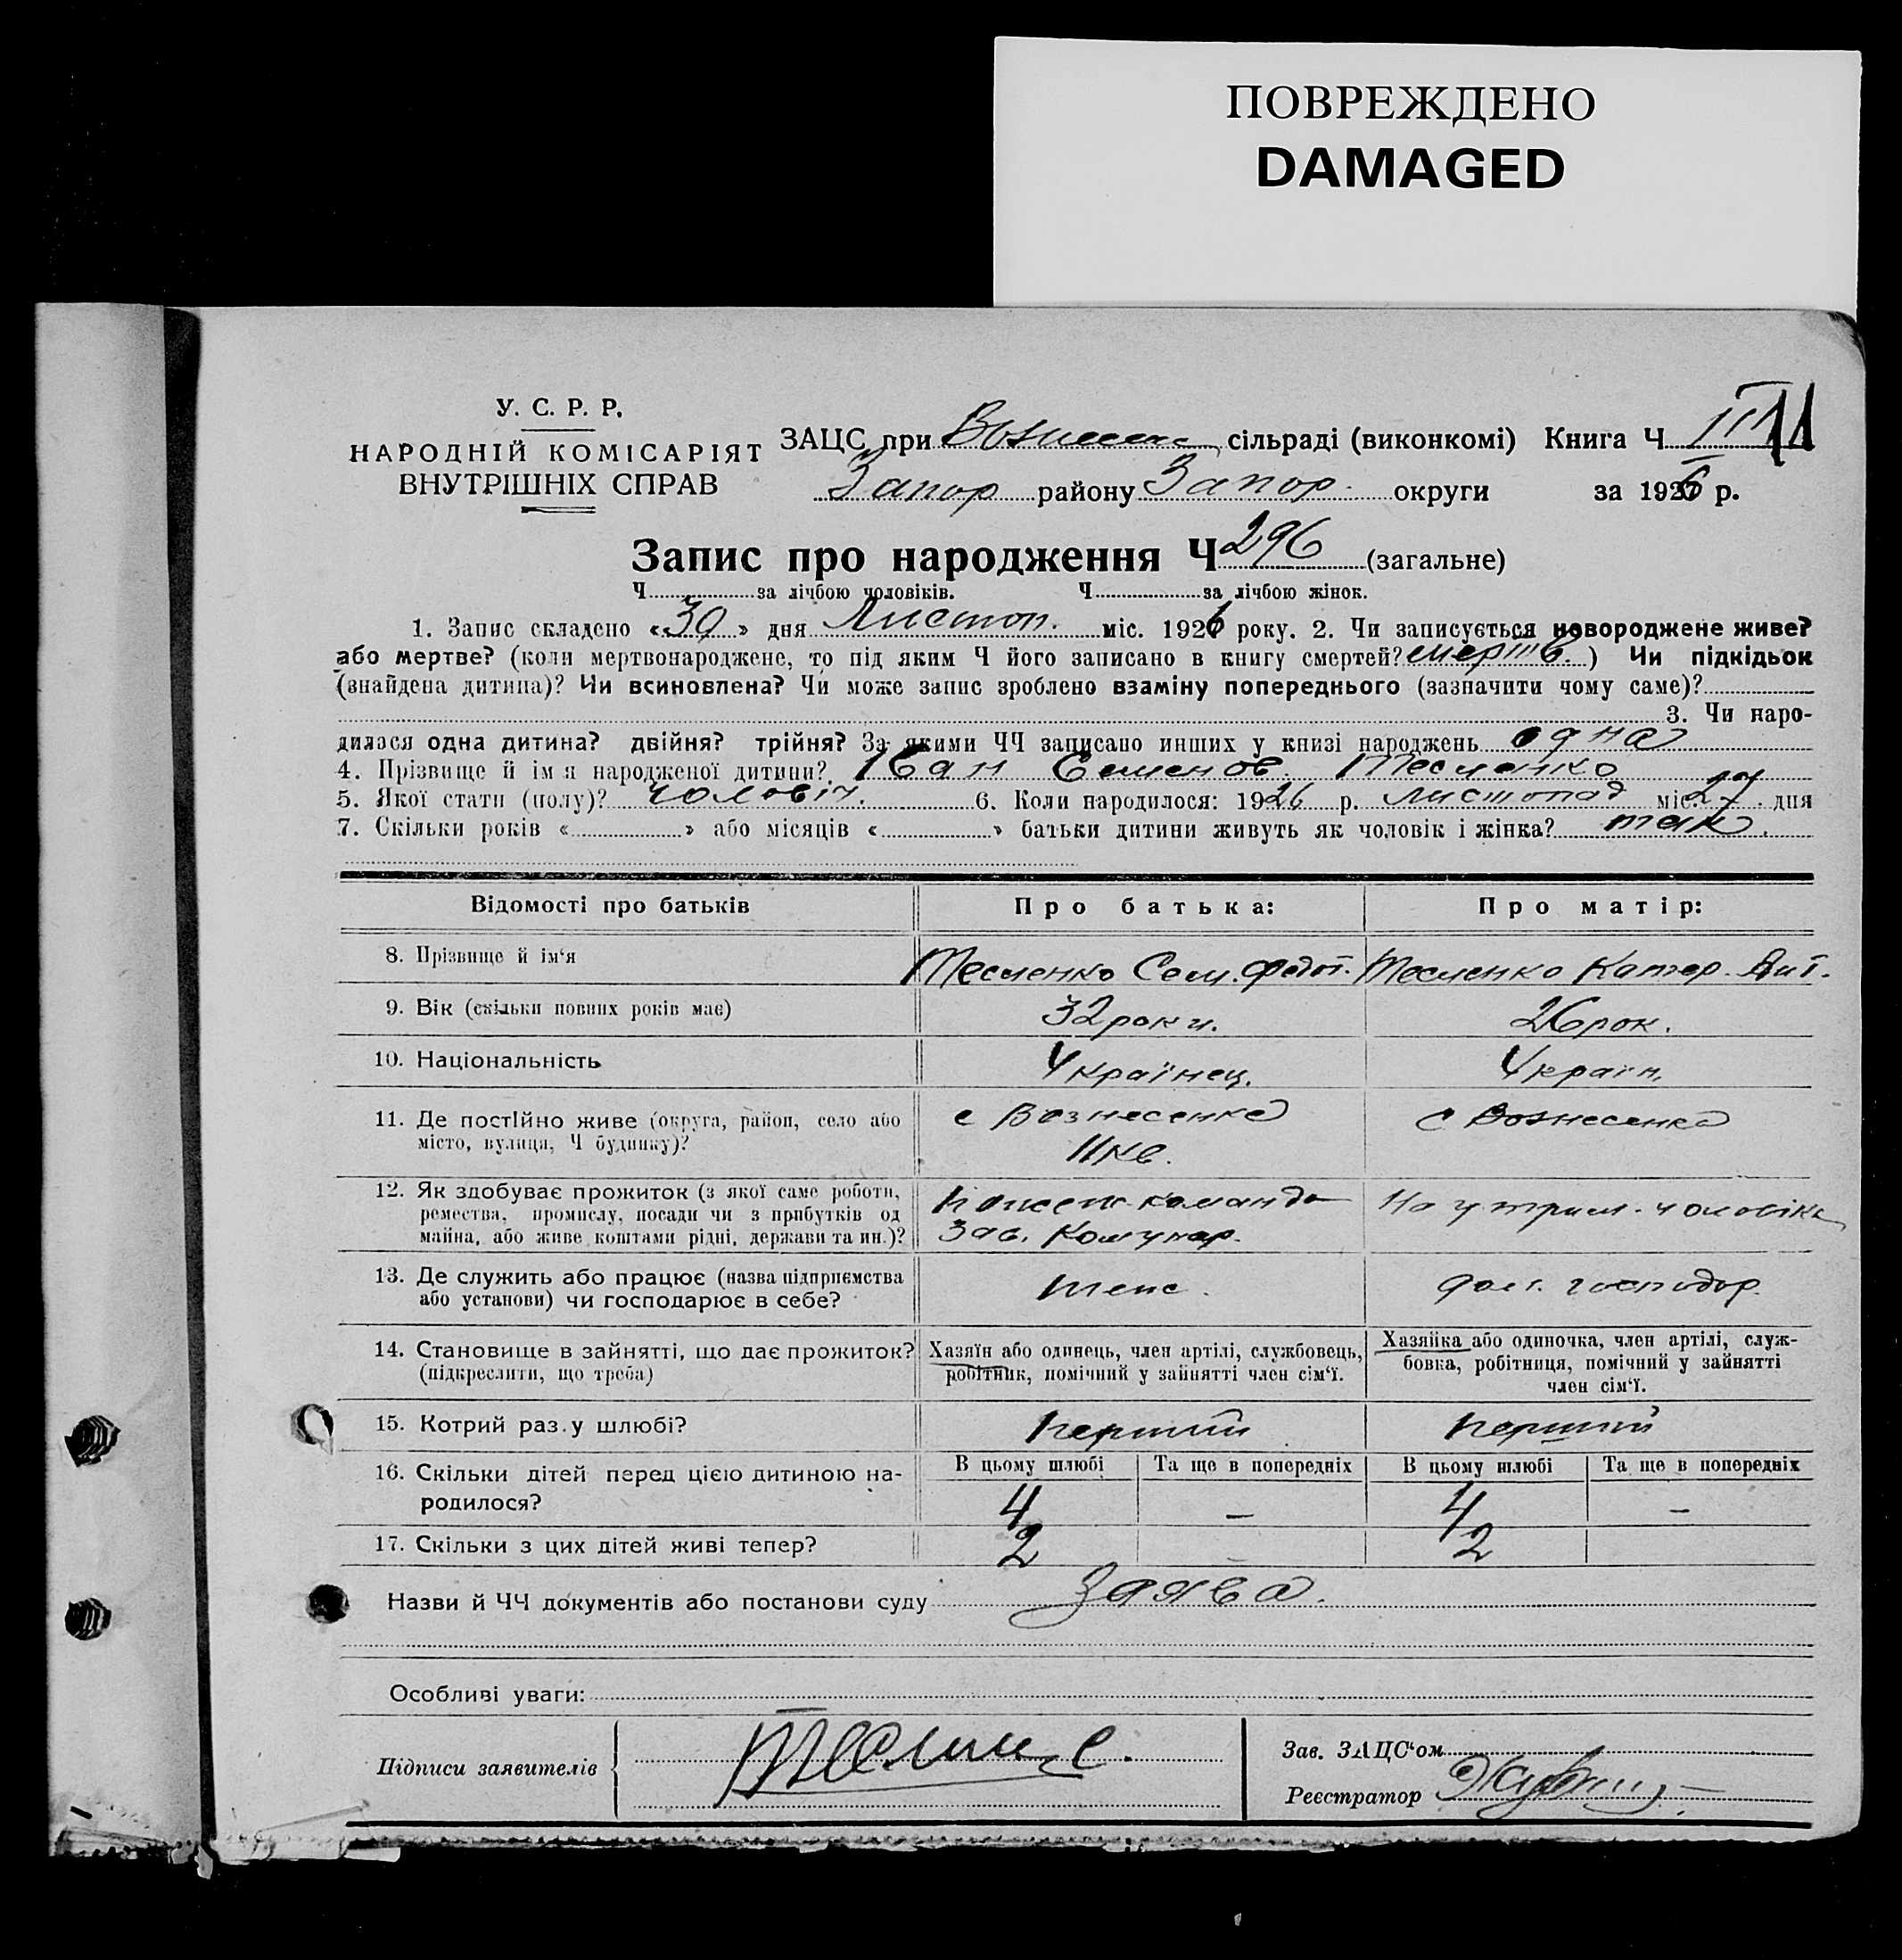 ПОВРЕЖДЕНО
DAMAGED
У. С. Р. Р.
НАРОДНІЙ КОМІСАРІЯТ
ВНУТРІШНІХ СПРАВ
ЗАЦС при Вознесенс. сільраді (виконкомі) Книга Ч III 11
Запор району Запор. округи за 1926 р.
Запис про народження Ч 296 (загальне)
Ч за лічбою чоловіків. Ч за лічбою жінок.
1. Запис складено «30» дня Листоп. міс. 1926 року. 2. Чи записується новороджене живе?
або мертве? (коли мертвонароджене, то під яким Ч його записано в книгу смертей? мертв.) Чи підкідьок
(знайдена дитина)? Чи всиновлена? Чи може запис зроблено взаміну попереднього (зазначити чому саме)?
3. Чи наро-
дилася одна дитина? двійня? трійня? За якими ЧЧ записано инших у книзі народжень одна
4. Прізвище й ім'я народженої дитини? Іван Семенов. Тесленко
5. Якої стати (полу)? чоловіч. 6. Коли народилося: 1926 р. листопад міс. 27 дня
7. Скільки років « » або місяців « » батьки дитини живуть як чоловік і жінка? так.
Відомості про батьків Про батька: Про матір:
8. Прізвище й ім'я Тесленко Сем. Федот. Тесленко Катер. Ант.
9. Вік (скільки повних років має) 32 роки. 26 рок.
10. Національність Українец. Україн.
11. Де постійно живе (округа, район, село або с Вознесенка с Вознесенка
місто, вулиця, Ч будинку)? 11 кв.
12. Як здобуває прожиток (з якої саме роботи, пожеж. команда На утрим. чоловіка
ремества, промислу, посади чи з прибутків од
майна, або живе коштами рідні, держави та ин.)? Зав. Комунар.
13. Де служить або працює (назва підприємства теж. дом. господар.
або установи) чи господарює в себе?
14. Становище в зайнятті, що дає прожиток? Хазяїн або одинець, член артілі, службовець, Хазяйка або одиночка, член артілі, служ-
(підкреслити, що треба) робітник, помічний у зайнятті член сім'ї. бовка, робітниця, помічний у зайнятті
член сім'ї.
15. Котрий раз у шлюбі? перший перший
16. Скільки дітей перед цією дитиною на- В цьому шлюбі Та ще в попередніх В цьому шлюбі Та ще в попередніх
родилося? 4 – 4 –
17. Скільки з цих дітей живі тепер? 2 – 2
Назви й ЧЧ документів або постанови суду заява.
Особливі уваги:
Підписи заявителів
Зав. ЗАЦС'ом
Реєстратор